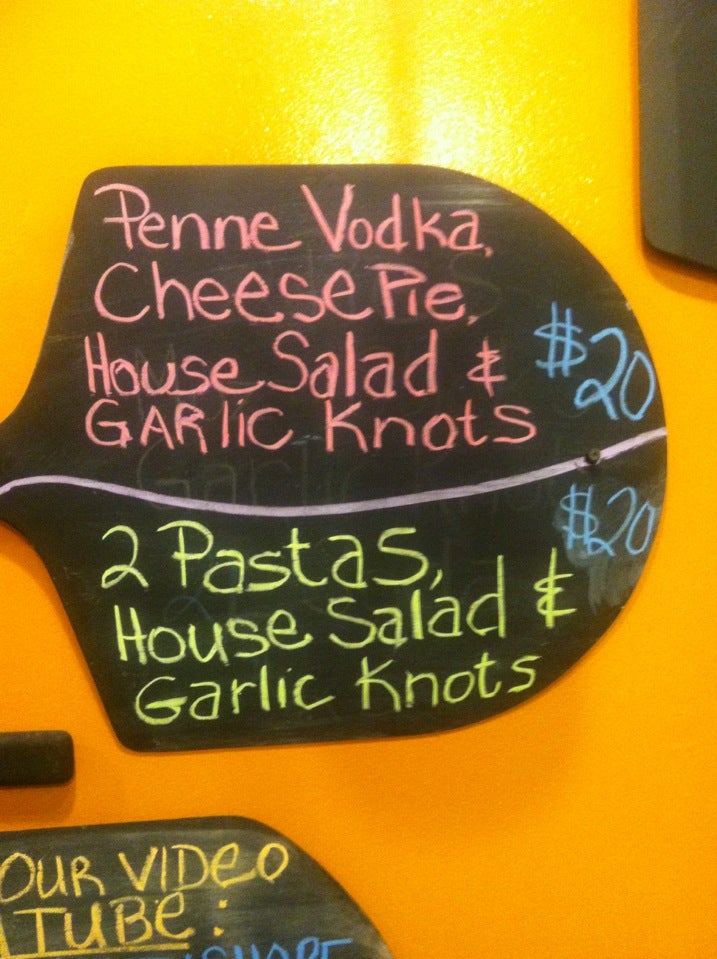 Penne Vodka,
Cheese Pie,
House Salad &
GARlic Knots
$20
2 Pastas,
House Salad &
Garlic Knots
$20
OUR VIDeo
TUBe: